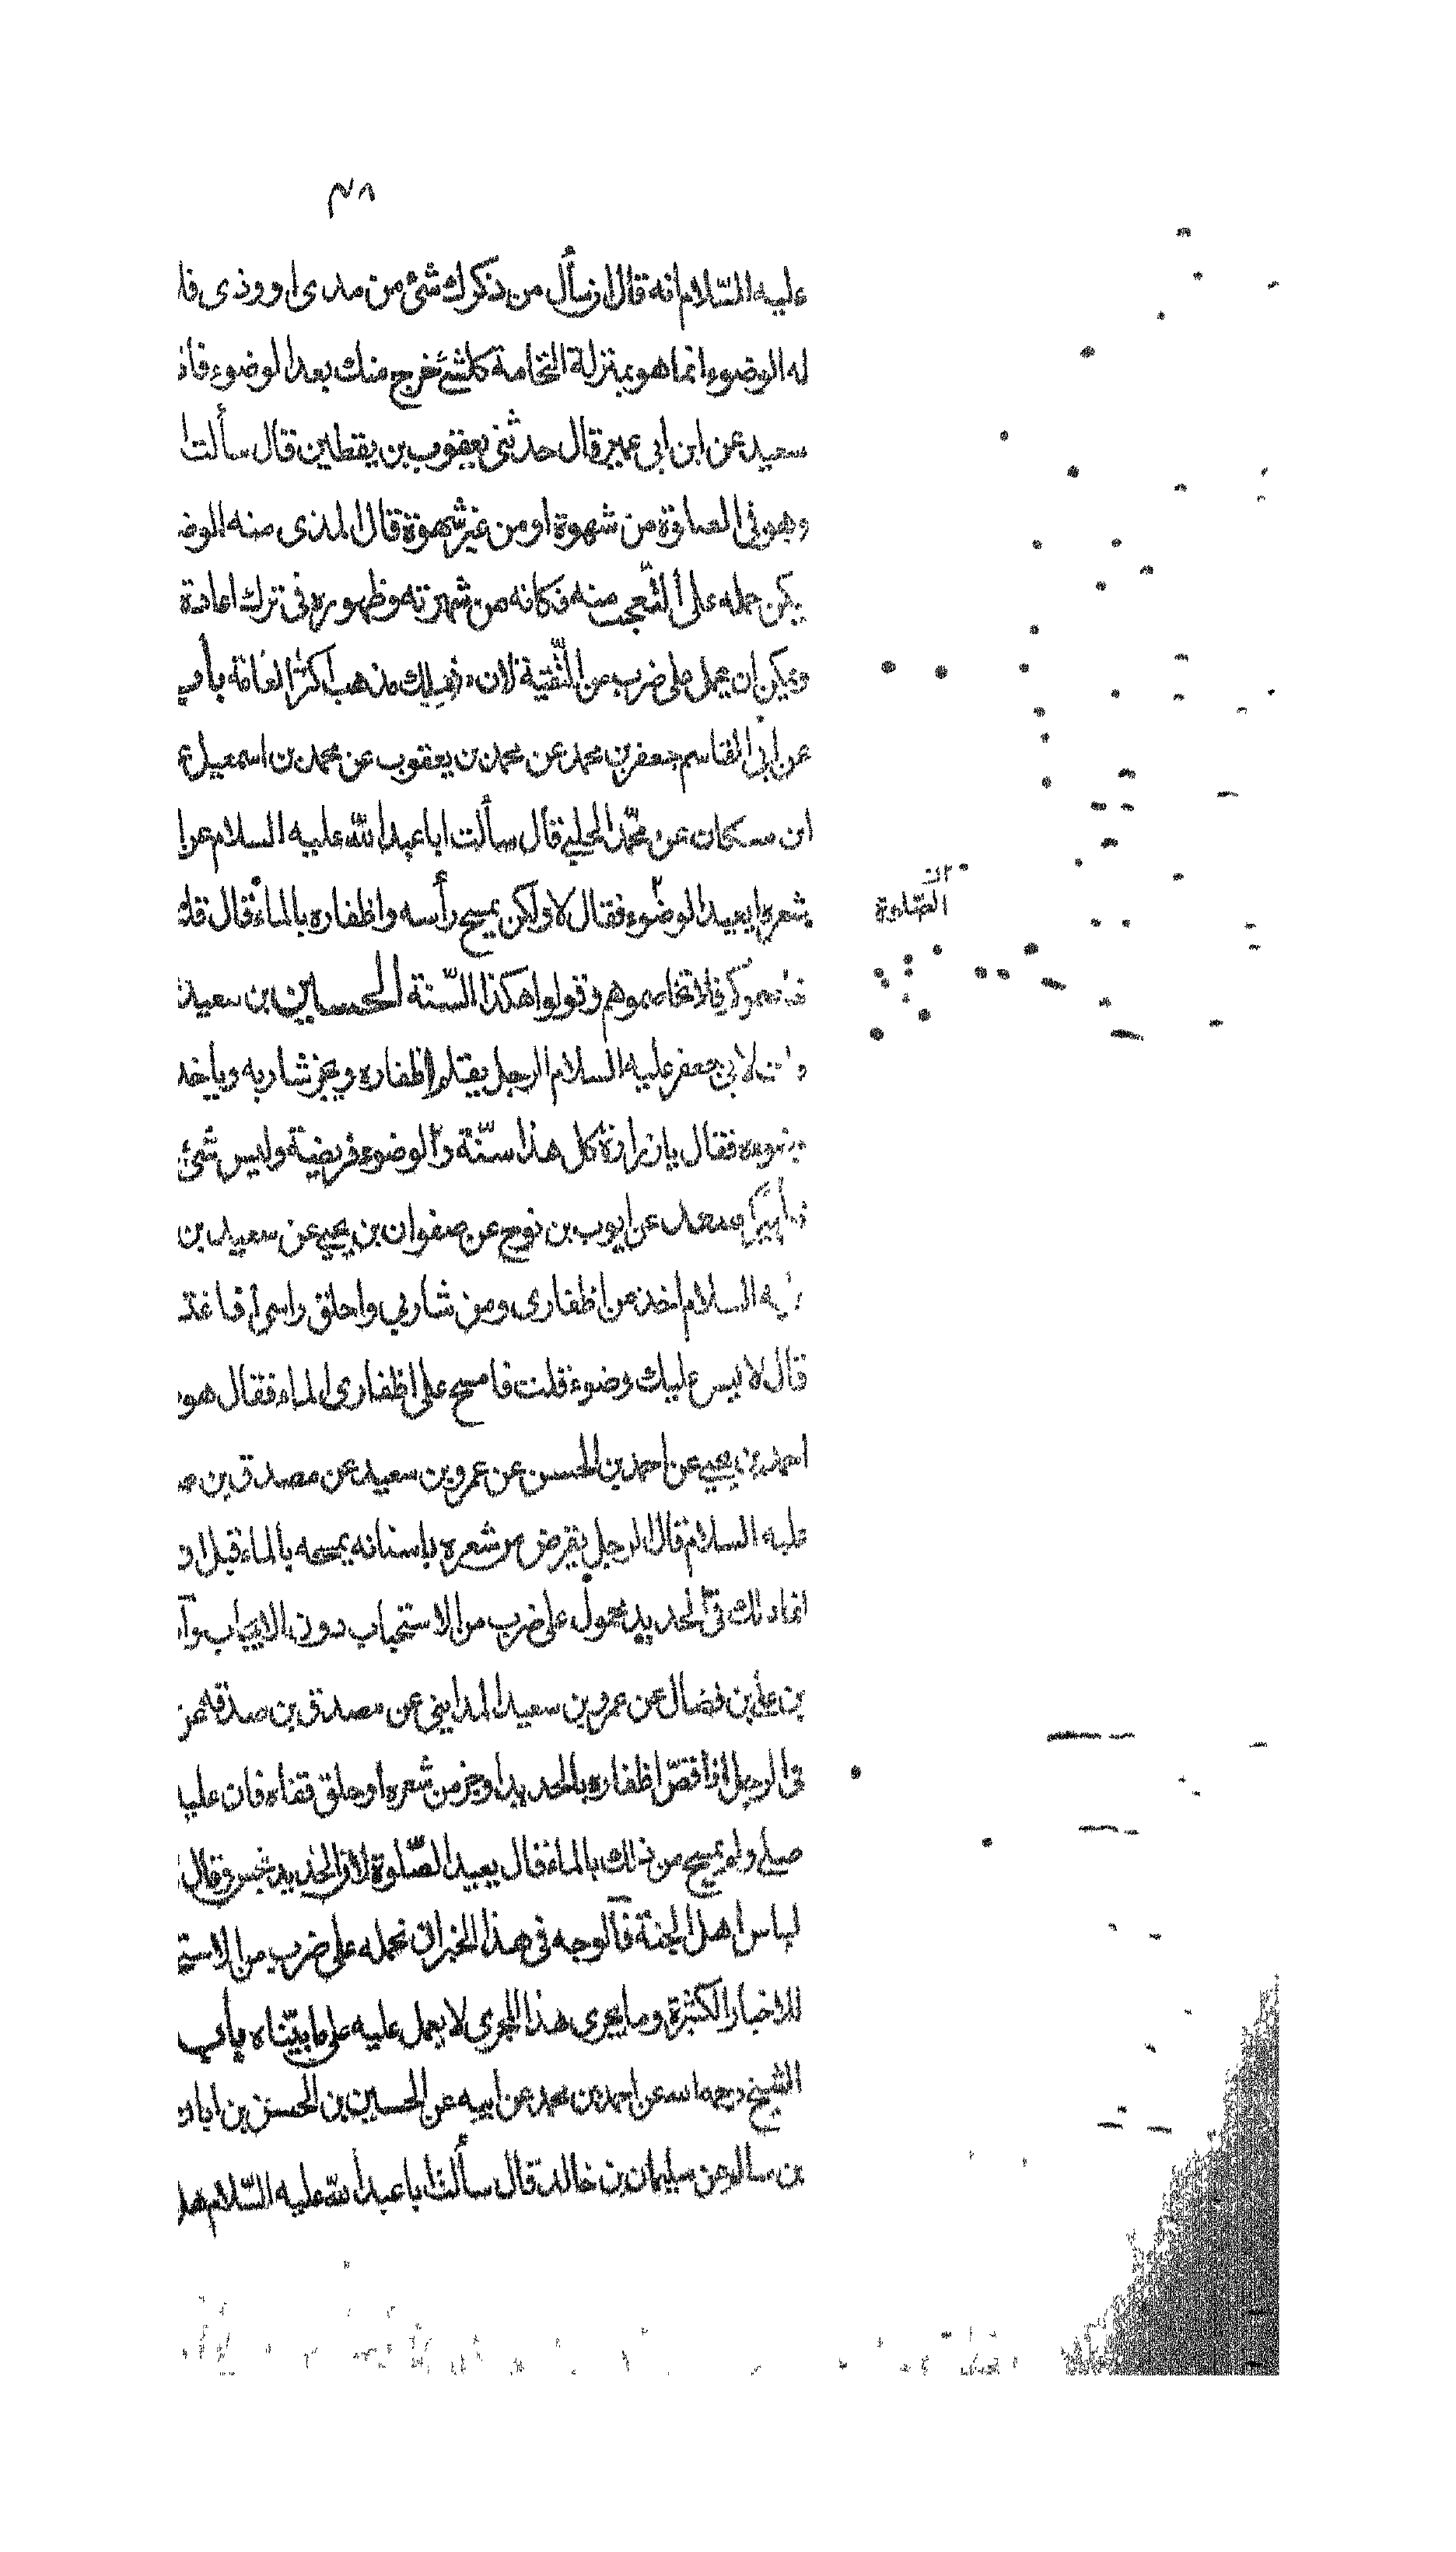 ٣٨
عليه السلام انه قال ان سأل من ذكرك شئ من مذى او وذى فلا
له الوضوء انما هو بمنزلة النخامة كل شئ خرج منك بعد الوضوء فانه
سعيد عن ابن ابى عمير قال حدثنى يعقوب بن يقطين قال سألت ا
وهو فى الصلوة من شهوة او من غير شهوة قال المذى منه الوضـ
يمكن حمله على التّعجب منه فكانه من شهرته وظهوره فى ترك اعادة
ويمكن ان يحمل على ضرب من التّقية لان ذلك مذهب اكثر العامّة باب
عن ابى القاسم جعفر بن محمد عن محمد بن يعقوب عن محمد بن اسمعيل ع
ابن مسكان عن محمّد الحلبى قال سألت ابا عبد الله عليه السلام عن ا
شعره ايعيد الوضوء فقال لا ولكن يمسح رأسه واظفاره بالماء قال قلت
الصّلوة
فلا تخاصموهم وقولوا هكذا السّنة الحسين بن سعيد
لابى جعفر عليه السلام الرجل يقلم اظفاره ويجز شاربه وياخذ
فقال يا زرارة كل هذا سنّة والوضوء فريضة وليس شئ
سعد عن ايوب بن نوح عن صفوان بن يحيى عن سعيد بن
السلام اخذ من اظفارى ومن شاربى واحلق راسى افاغتـ
قال لا ليس عليك وضوء قلت فامسح على اظفارى الماء فقال هو
احمد بن يحيى عن احمد بن الحسن عن عمرو بن سعيد عن مصدق بن صـ
عليه السلام قال الرجل يقرض من شعره باسنانه يمسحه بالماء قبل ا
انما ذلك فى الحديد محمول على ضرب من الاستحباب دون الايجاب وا
بن على بن فضال عن عمرو بن سعيد المداينى عن مصدق بن صدقه عن
فى الرجل اذا قصّ اظفاره بالحديد او جز من شعره او حلق قفاه فان عليه
صلى ولم يمسح من ذلك بالماء قال يعيد الصّلوة لان الحديد نجس وقال
لباس اهل الجنة فالوجه فى هذا الخبر ان نحمله على ضرب من الاستحـ
للاخبار الكثيرة وما يجرى هذا المجرى لا يعمل عليه على ما بيّناه باب
الشيخ رحمه الله عن احمد بن محمد عن ابيه عن الحسين بن الحسن بن ابان
بن سالم عن سليمان بن خالد قال سألت ابا عبد الله عليه السّلام هل